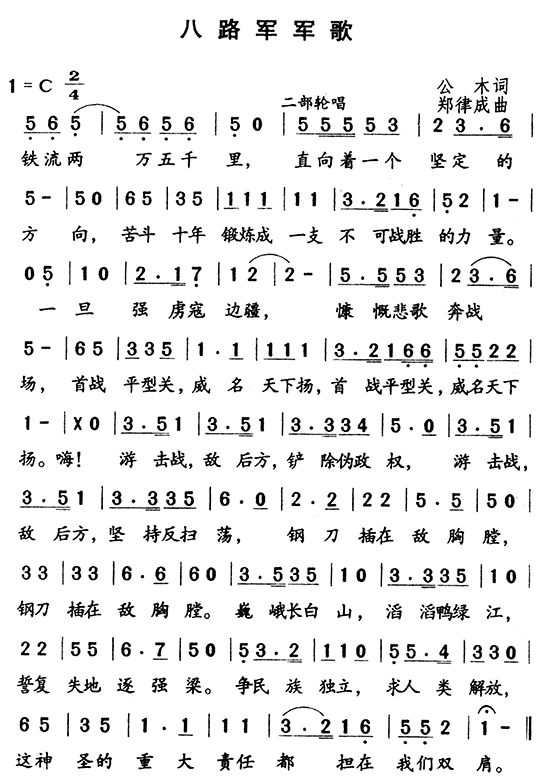 八路军军歌
1=C 2/4
公木词
二部轮唱 郑律成曲
5 6 5 | 5 6 5 6 | 5 0 | 5 5 5 5 5 3 | 2 3 . 6 |
铁流两 万五千 里， 直向着一个 坚定 的
5 - | 5 0 | 6 5 | 3 5 | 1 1 1 | 1 1 | 3 . 2 1 6 | 5 2 | 1 - |
方 向，苦斗 十年 锻炼成 一支 不 可战胜 的力 量。
0 5 | 1 0 | 2 . 1 7 | 1 2 | 2 - | 5 . 5 5 3 | 2 3 . 6 |
一 旦 强 虏寇 边疆， 慷 慨悲歌 奔战
5 - | 6 5 | 3 3 5 | 1 . 1 | 1 1 1 | 3 . 2 1 6 6 | 5 5 2 2 |
场， 首战 平型关，威 名 天下扬，首 战平型关，威名天下
1 - | X 0 | 3 . 5 1 | 3 . 5 1 | 3 . 3 3 4 | 5 . 0 | 3 . 5 1 |
扬。嗨！ 游 击战，敌 后方，铲 除伪政 权， 游 击战，
3 . 5 1 | 3 . 3 3 5 | 6 . 0 | 2 . 2 | 2 2 | 5 . 5 | 5 0 |
敌 后方，坚 持反扫 荡， 钢 刀 插在 敌 胸 膛，
3 3 | 3 3 | 6 . 6 | 6 0 | 3 . 5 3 5 | 1 0 | 3 . 3 3 5 | 1 0 |
钢刀 插在 敌 胸 膛。巍 峨长白 山， 滔 滔鸭绿 江，
2 2 | 5 5 | 6 . 7 | 5 0 | 5 3 . 2 | 1 1 0 | 5 5 . 4 | 3 3 0 |
誓复 失地 逐 强 梁。 争民 族 独立， 求人 类 解放，
6 5 | 3 5 | 1 . 1 | 1 1 | 3 . 2 1 6 | 5 5 2 | 1 - ‖
这神 圣的 重 大 责任 都 担在 我们双 肩。